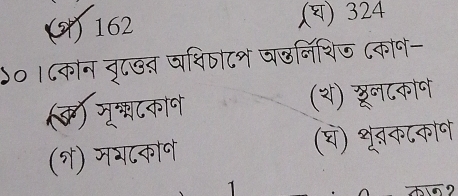 (গ) 162 (ঘ) 324
১০। কোন বৃত্তের অধিচাপে অন্তর্লিখিত কোণ–
(ক) সূক্ষ্মকোণ (খ) স্থূলকোণ
(গ) সমকোণ (ঘ) পূরককোণ